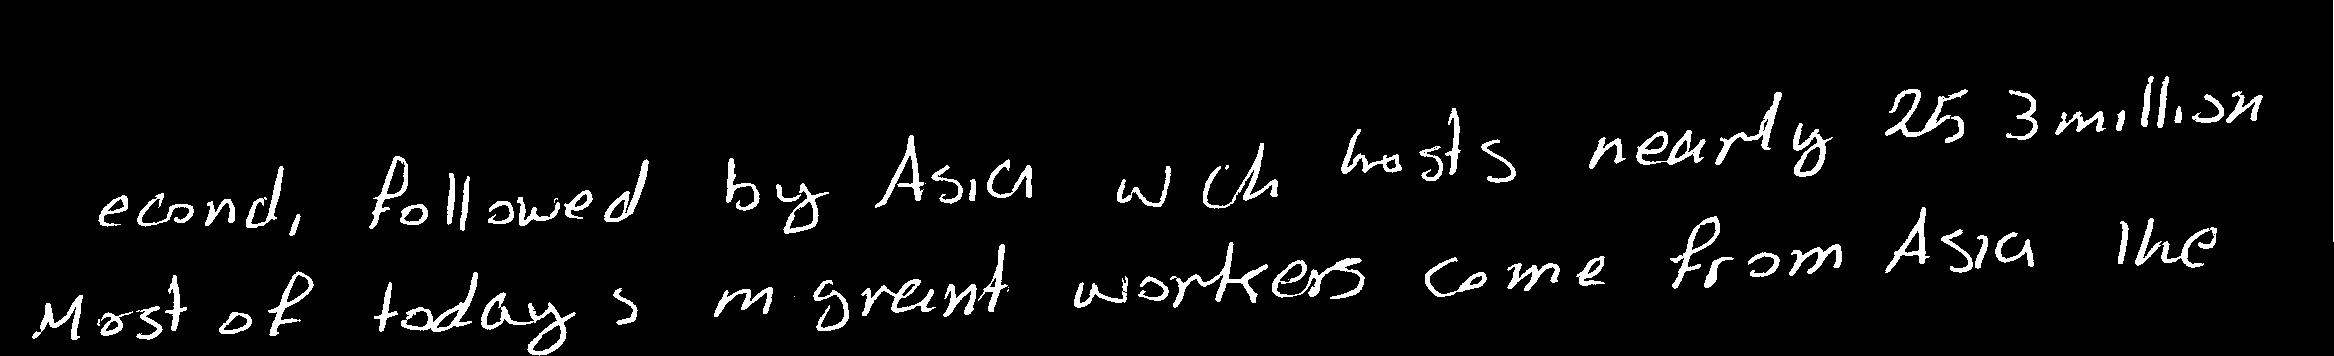 econd, followed by Asia wch hosts nearly 25 3 million
Most of today s m grant workers come from Asia the